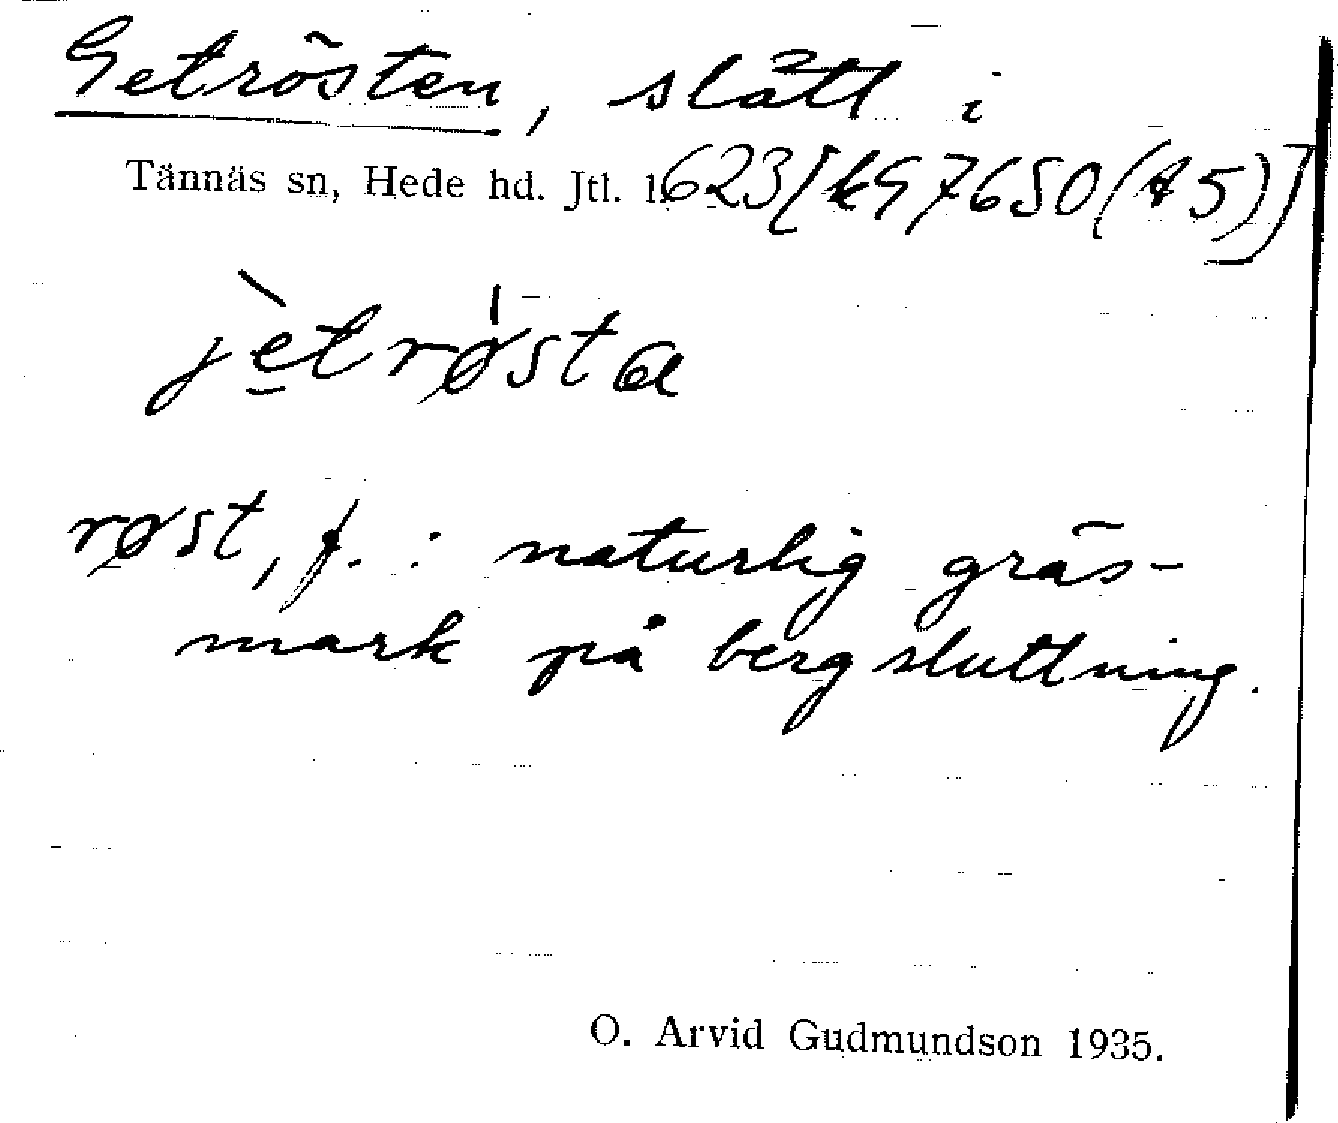 Getrösten, slått i
Tännäs sn, Hede hd. Jtl. 1.623[kg7650(A5)]
jètrøsta
røst, f. : naturlig gräs-
mark på bergsluttning.
O. Arvid Gudmundson 1935.